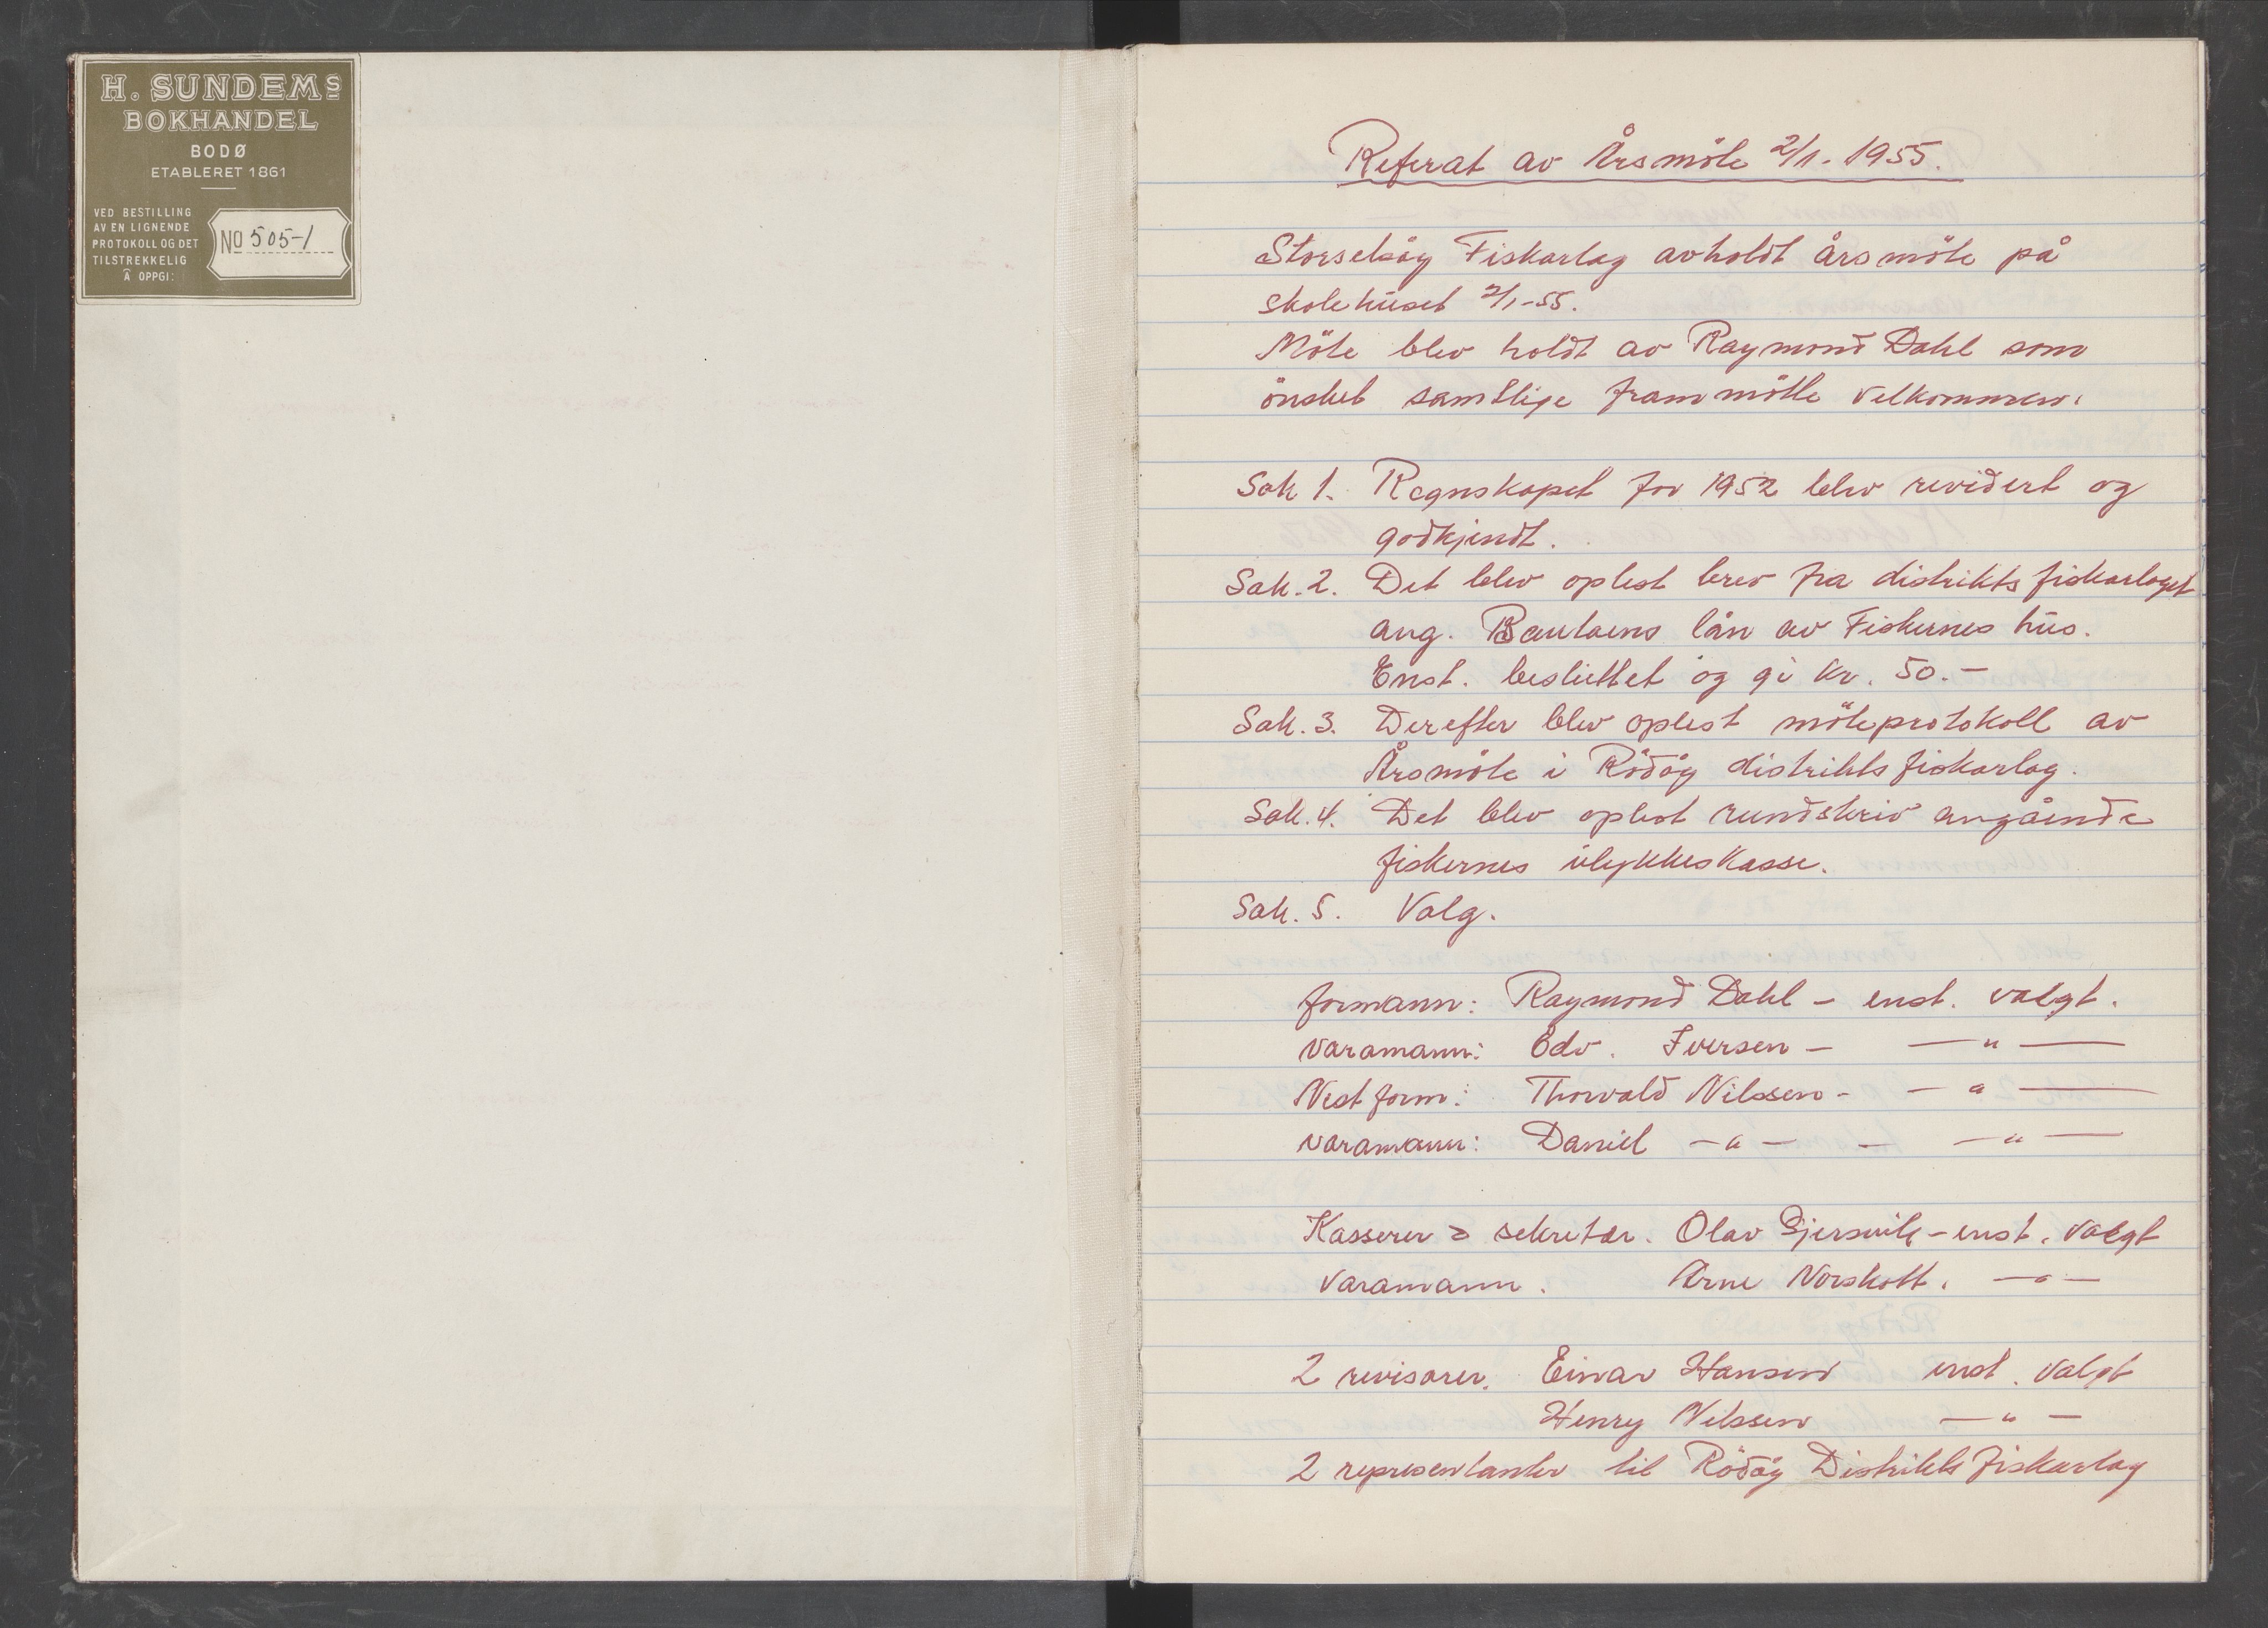 H. SUNDEMS
BOKHANDEL
BODØ
ETABLERET 1861
VED BESTILLING
AV EN LIGNENDE
PROTOKOLL OG DET
TILSTREKKELIG
Å OPPGI:
No 505-1
Referat av Årsmöte 2/1. 1955.
Storselsöy Fiskarlag avholdt årsmöte på
skolehuset 2/1-55.
Möte blev holdt av Raymond Dahl som
önsket samtlige frammötte velkommen.
Sak 1. Regnskapet for 1952 blev revidert og
godkjendt.
Sak. 2. Det blev oplest brev fra distrikts fiskarlaget
ang. Bautaens lån av Fiskernes hus.
Enst. besluttet og gi kr. 50.-
Sak. 3. Derefter blev oplest möteprotokoll av
Årsmöte i Rödöy distrikts fiskarlag.
Sak. 4. Det blev oplest rundskriv angående
fiskernes ulykkeskasse.
Sak. 5. Valg.
formann: Raymond Dahl - enst. valgt.
Varamann: Edv. Iversen - — " —
Nestform: Thorvald Nilssen - — " —
Varamann: Daniel — " — - — " —
Kasserer & sekretær. Olav Gjersvik - enst. valgt
Varamann. Arne Norskott. — " —
2 revisorer. Einar Hansen enst. valgt
Henry Nilssen — " —
2 representanter til Rödöy Distrikts fiskarlag